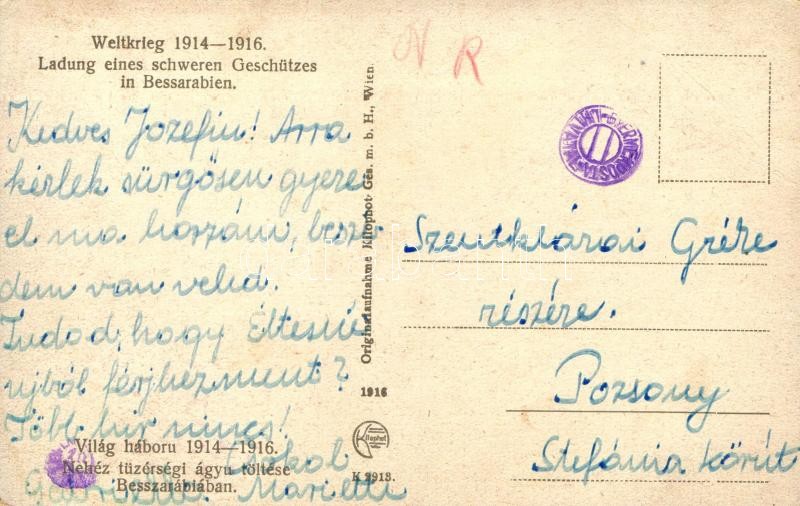 Weltkrieg 1914—1916.
Ladung eines schweren Geschützes
in Bessarabien.
Kedves Jozefin! Arra
kérlek sürgősen gyere
el ma hozzám, besze
dem van veled.
Tudod, hogy Éltesné
ujból férjhezment?
Több hir nincs!
Csókol
Marietta
Világ háboru 1914—1916.
Nehéz tüzérségi ágyu töltése
Besszarábiában.
Originalaufnahme Kilophot Ges. m. b. H., Wien.
1916
Kilophot
K 2913.
N R
11
Szentklárai Gréte
részére.
Pozsony
Stefánia körút